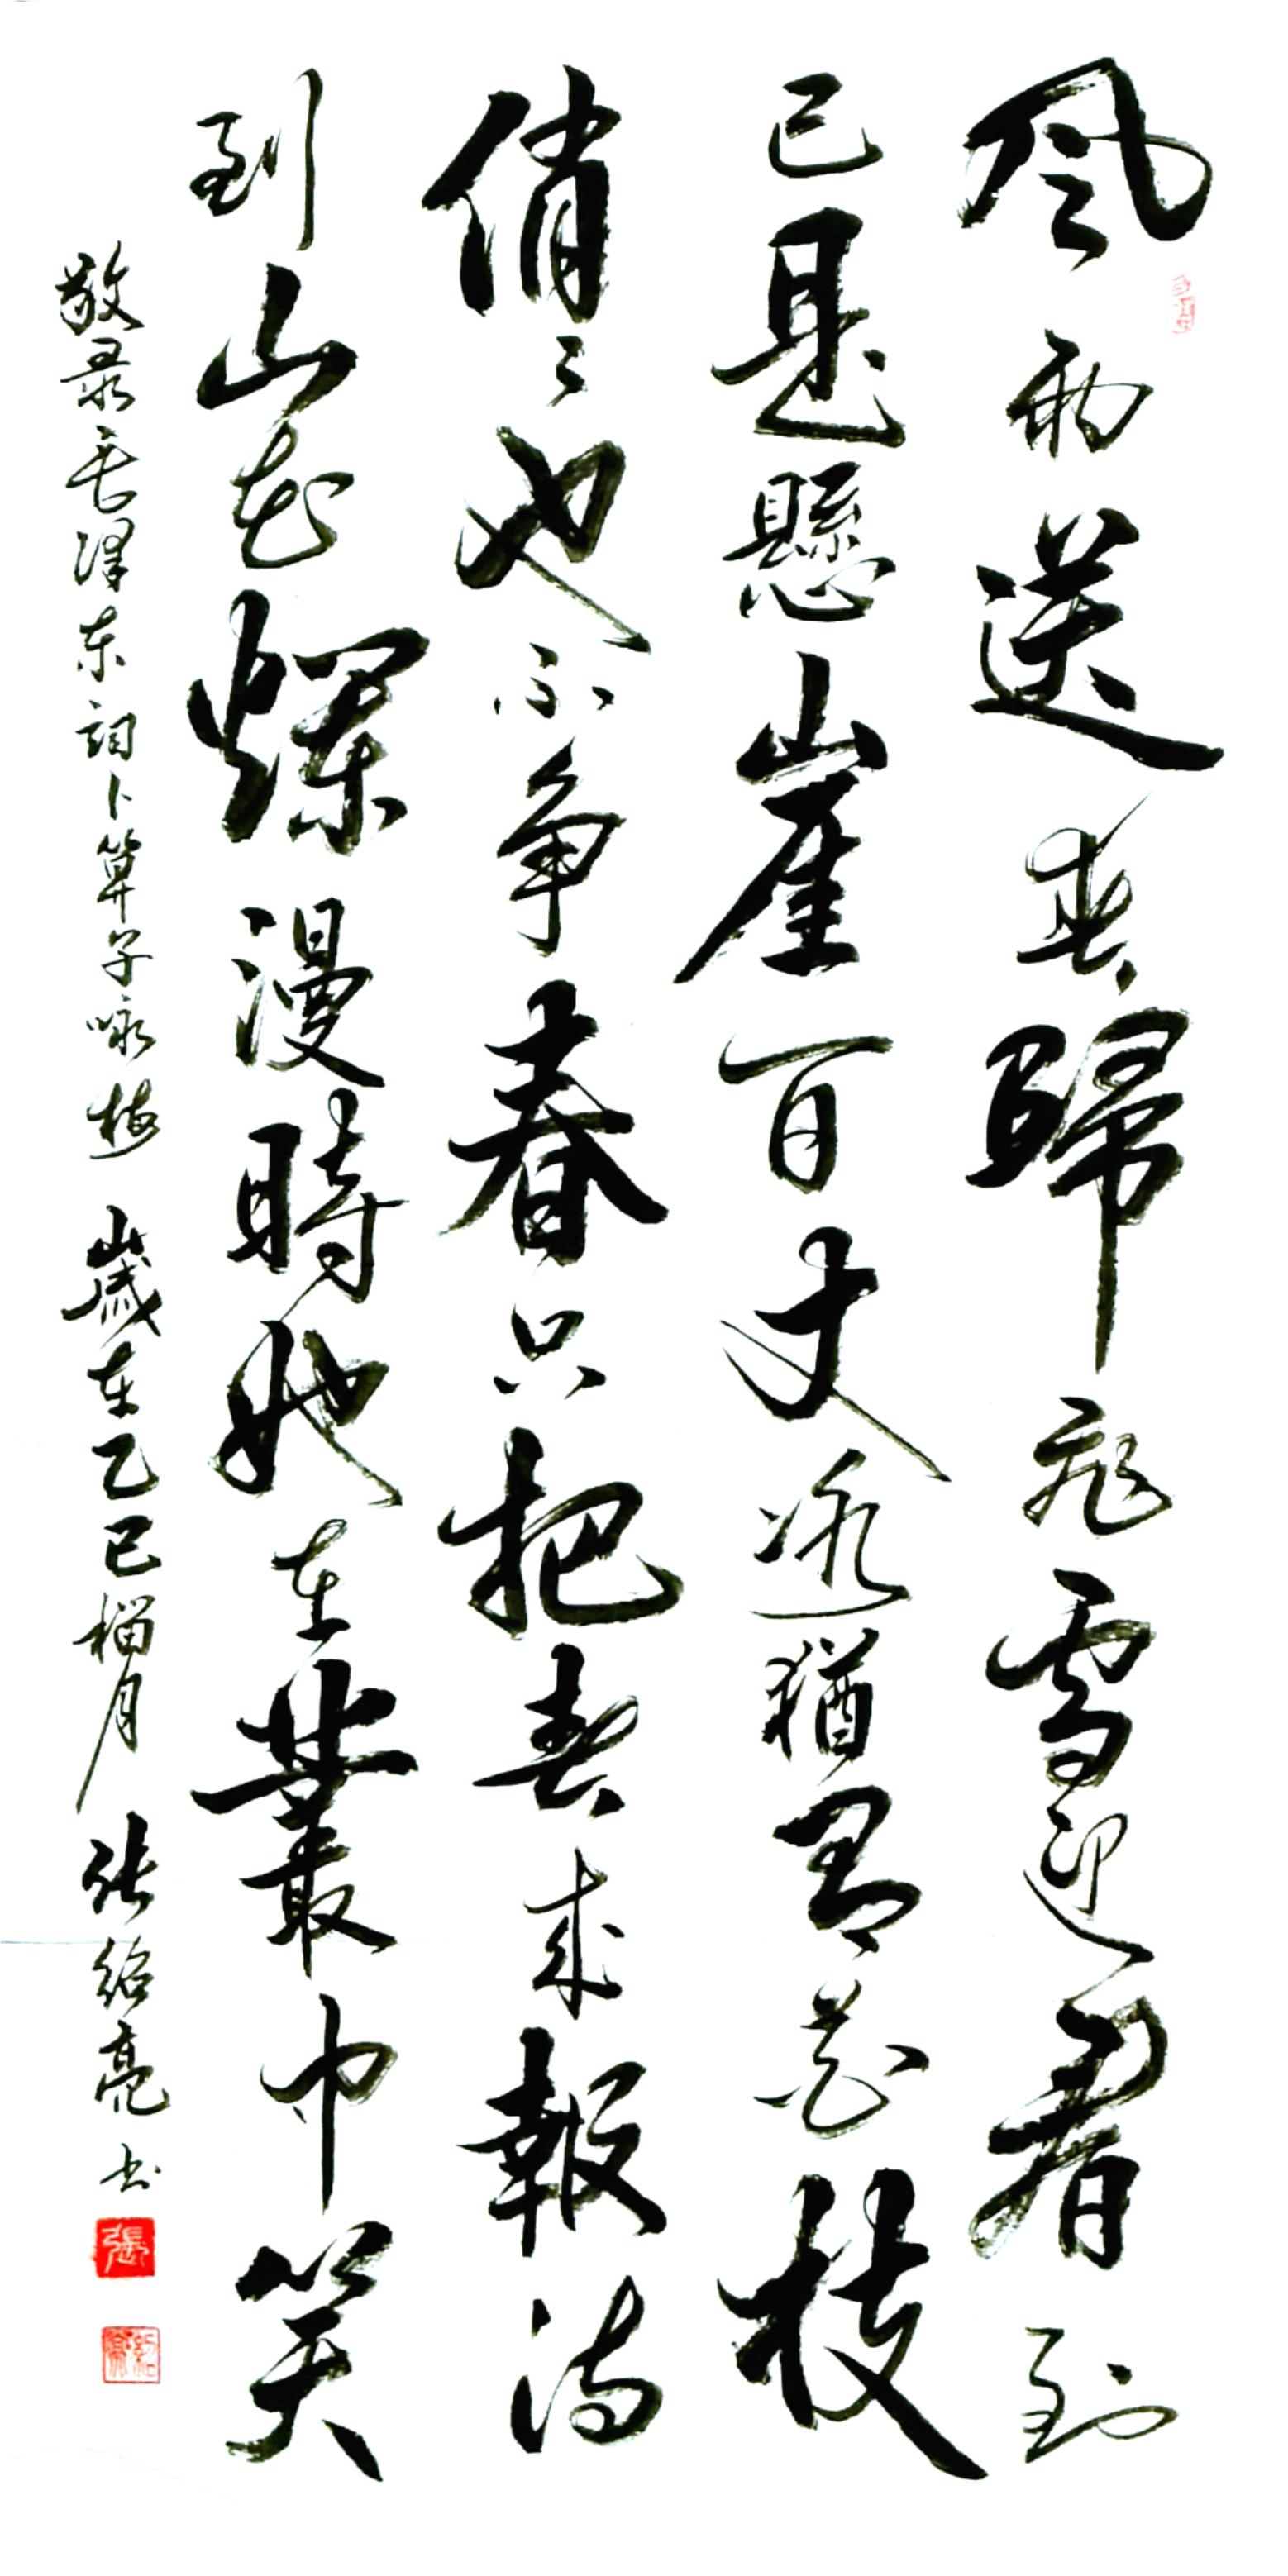 風雨送春歸飛雪迎春到
已是懸崖百丈冰猶有花枝
俏〻也不争春只把春來報待
到山花爛漫時她在叢中笑
敬录毛泽东詞卜算子咏梅 歲在乙巳榴月 张绍亮书
張
紹亮